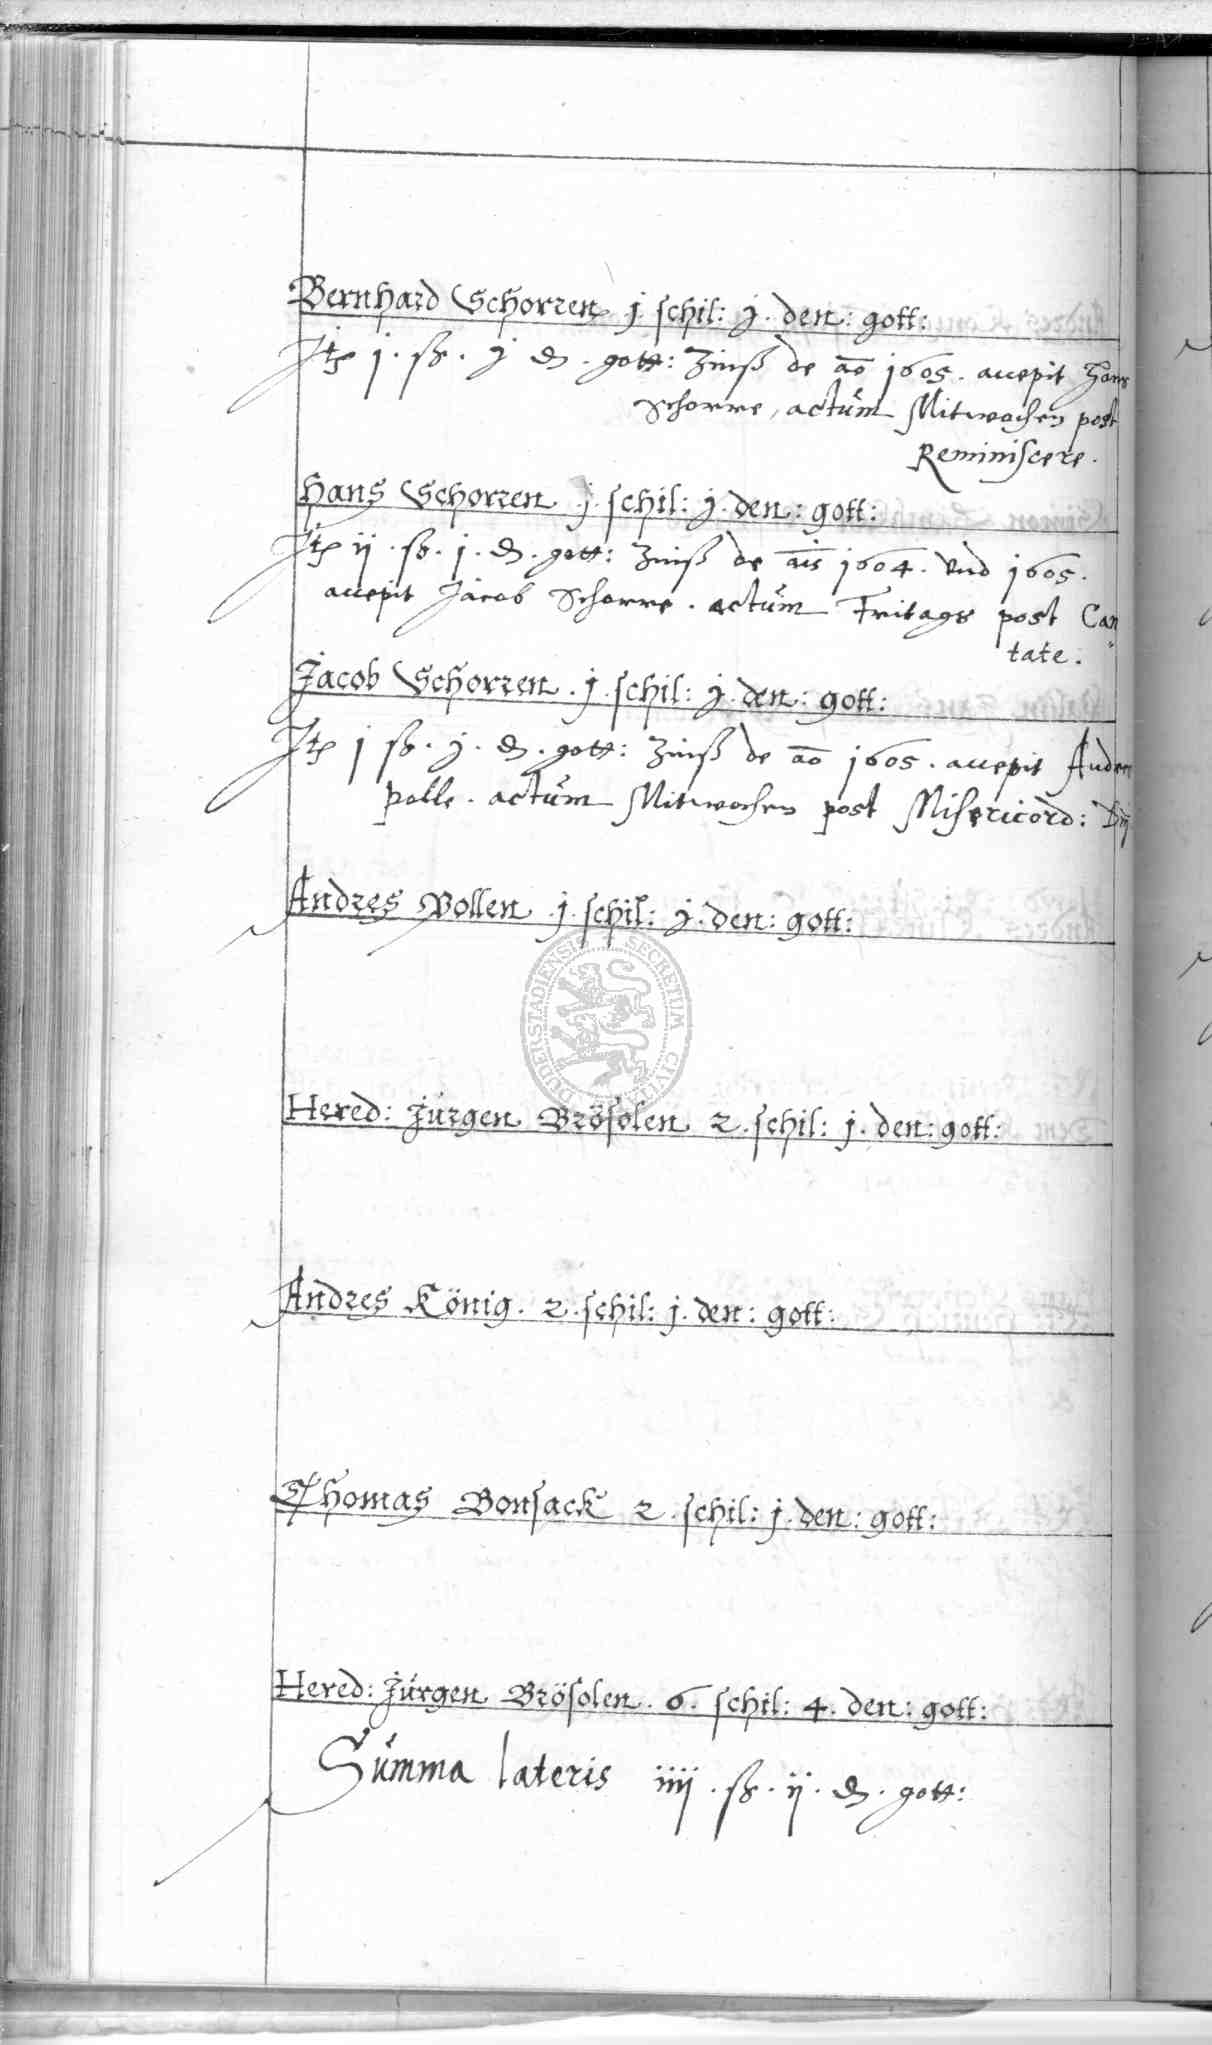 Bernhard Schorren j schil: j. den: gott:
Itp j. sß. j d. gott: Zinß de ao 1605. accepit Hans
Schorre, actum Mitwochen post
Reminiscere.
Hans Schorren j. schil: j. den: gott:
Itp ij. sß. j. d. gott: Zinß de ais 1604. vnd 1605.
accepit Jacob Schorre. actum Fritags post Can
tate.
Jacob Schorren. j. schil: j. den: gott:
Itp j sß. j. d. gott: Zinß de ao 1605. accepit Andere
Polle. actum Mitwochen post Misericord: Dnj
Andres Pollen j. schil: j. den: gott:
DUDERSTADIENSIS SECRETUM CIVIT
Hered: Jürgen Brösolen 2. schil: j. den: gott:
Andres König. 2. schil: j. den: gott:
Thomas Bonsack 2. schil: j. den: gott:
Hered: Jürgen Brösolen. 6. schil: 4. den: gott:
Summa lateris iiij. sß. ij. d. gott: